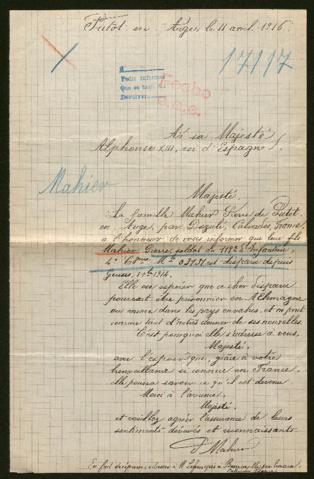 Putot en Auge, le 11 avril 1916
17117
A
Para informe
Que se sac
Devolver
Fecho
A sa Majesté
Alphonse XIII, roi d'Espagne
Mahier
Majesté.
La famille Mahier Pierre de Putot
en Auge, par Dozulé, Calvados, France,
a l'honneur de vous informer que leur fils
Mahier Pierre, soldat du Infanterie
est disparu depuis
1914.
Elle ose espérer que ce cher disparu
pourrait être prisonnier en Allemagne
ou même dans les pays envahis, et ne peut
comme tant d'autres donner de ses nouvelles.
C'est pourquoi elle s'adresse à vous,
Majesté.
avec l'espoir que, grâce à votre
bienveillance si connue en France,
elle pourra savoir ce qu'il est devenu
Merci à l'avance,
Majesté.
et veuillez agréer l'assurance de leurs
sentiments dévoués et reconnaissants.
P. Mahier